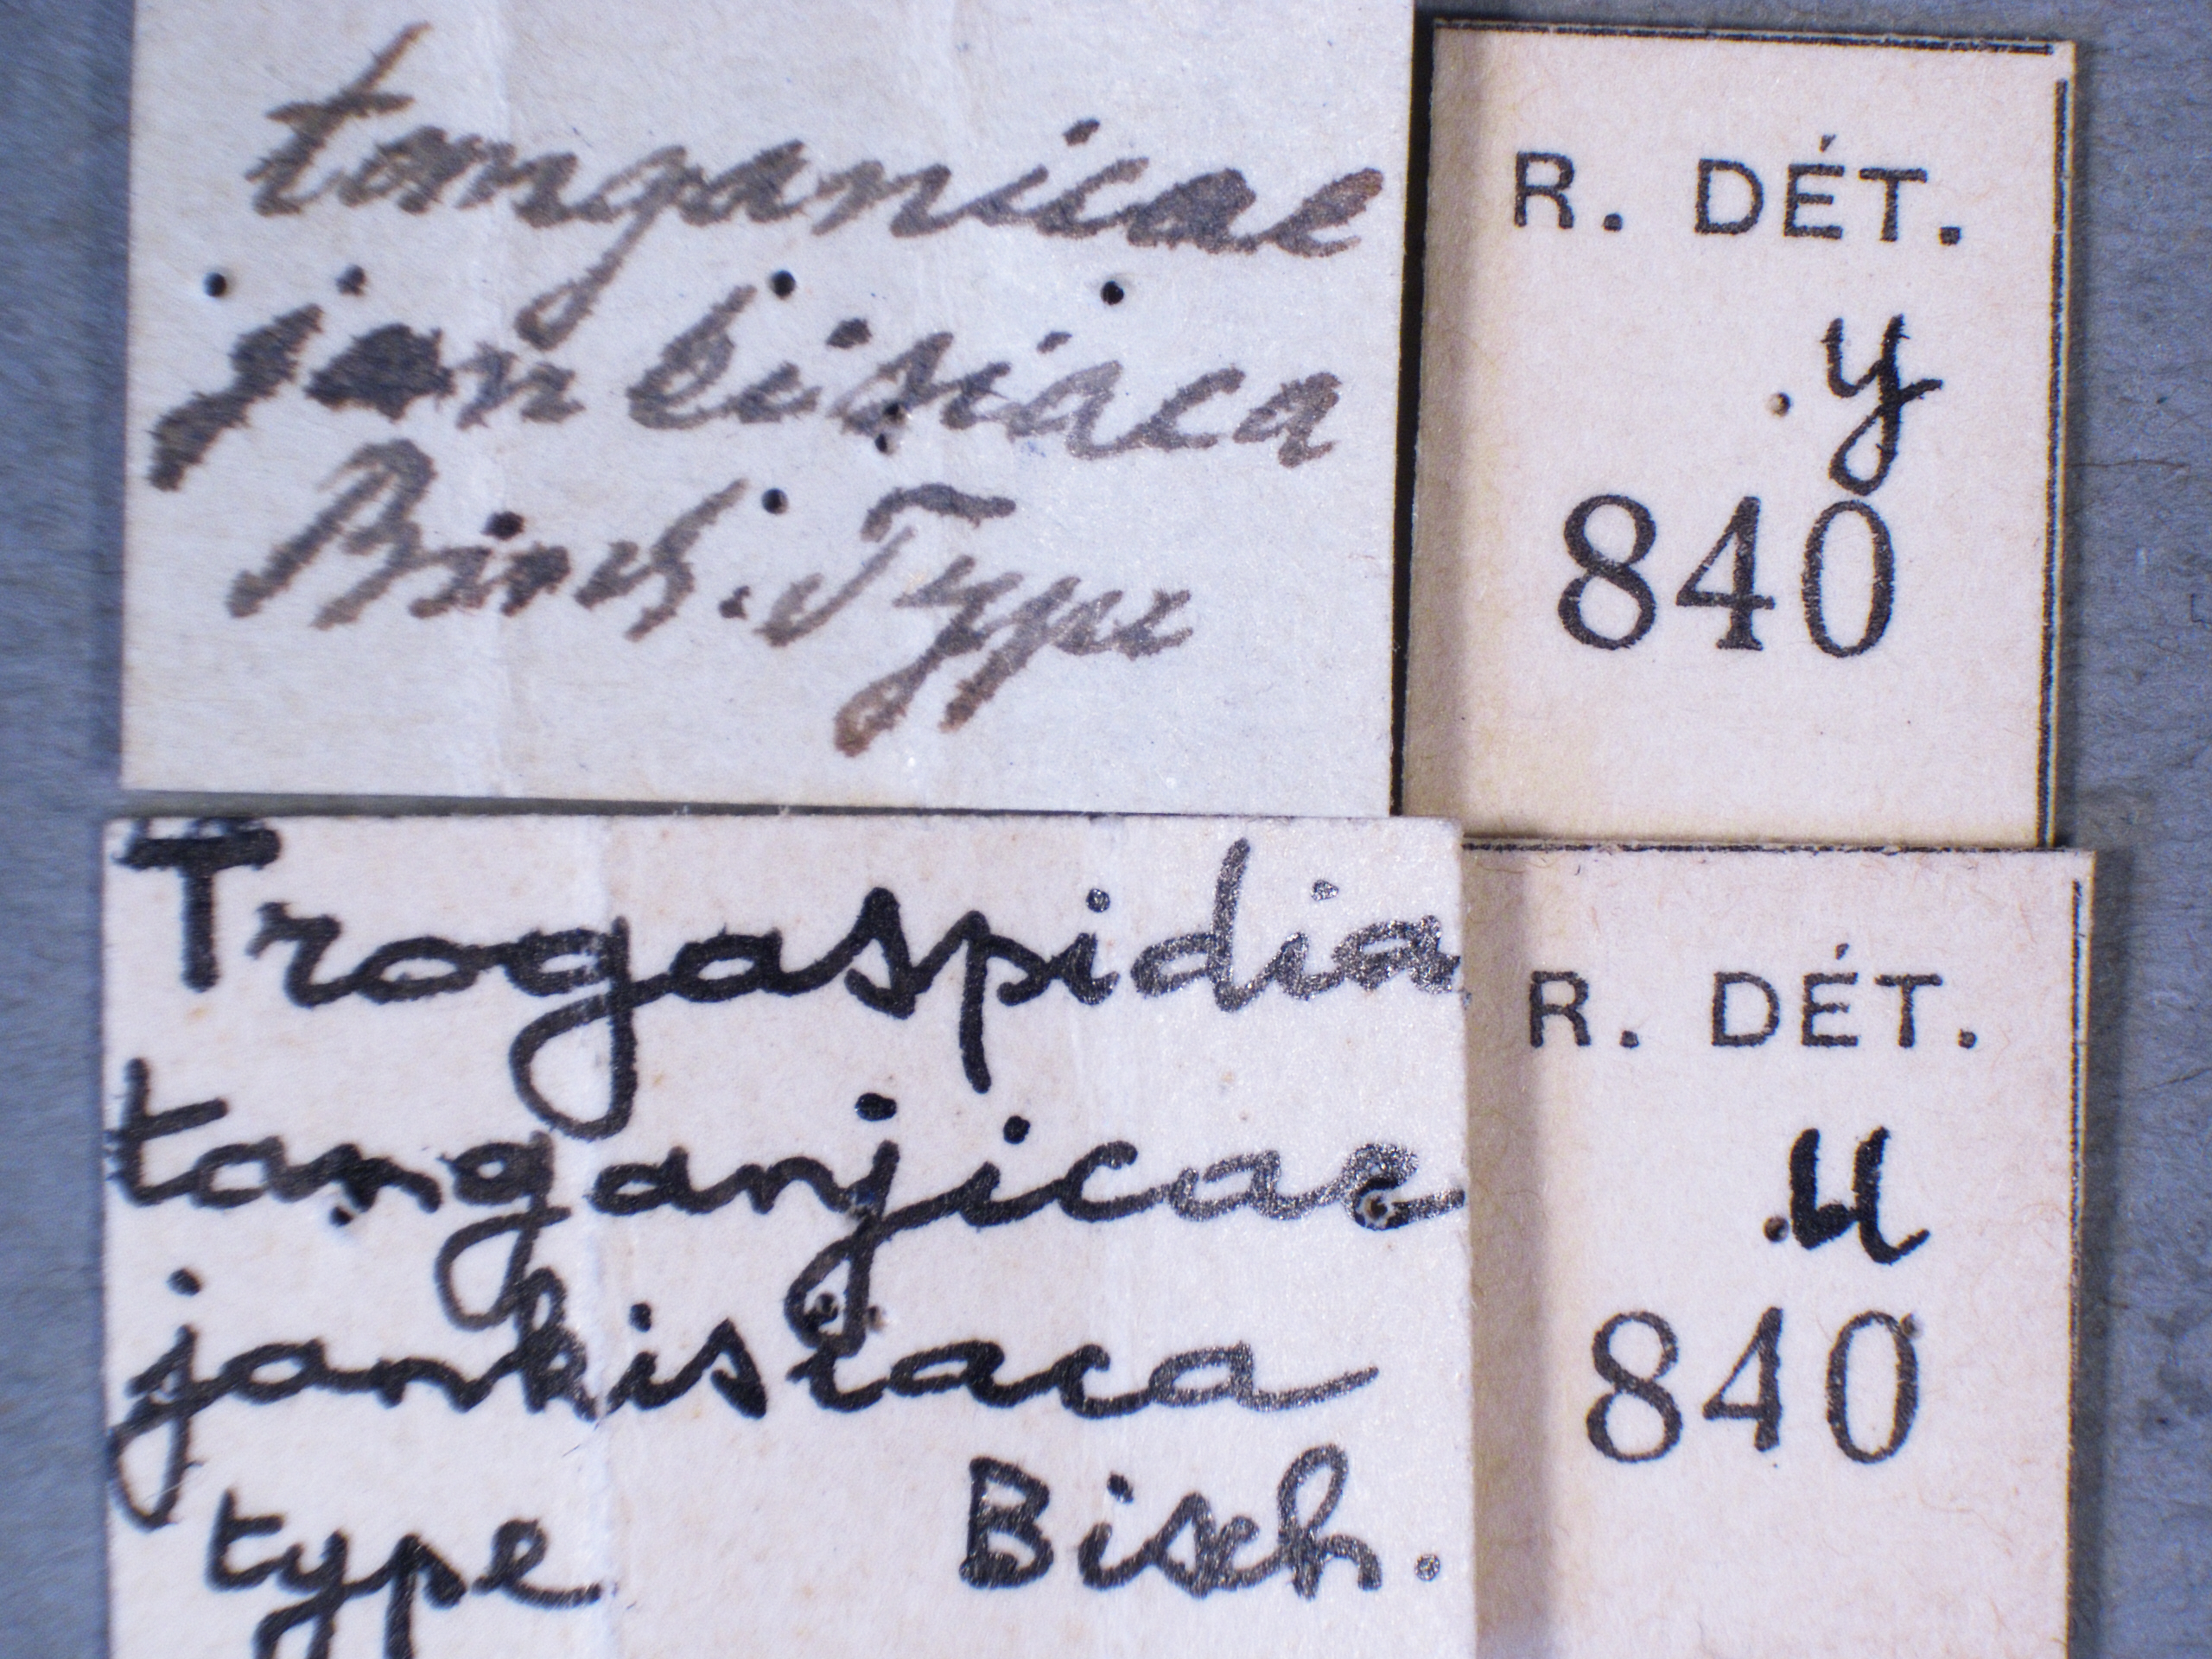 tanganicae
jankisiaca
Bisch. Type
R. DÉT.
y
840
Trogaspidia
tanganjicae
jankisiaca
type Bisch.
R. DÉT.
u
840